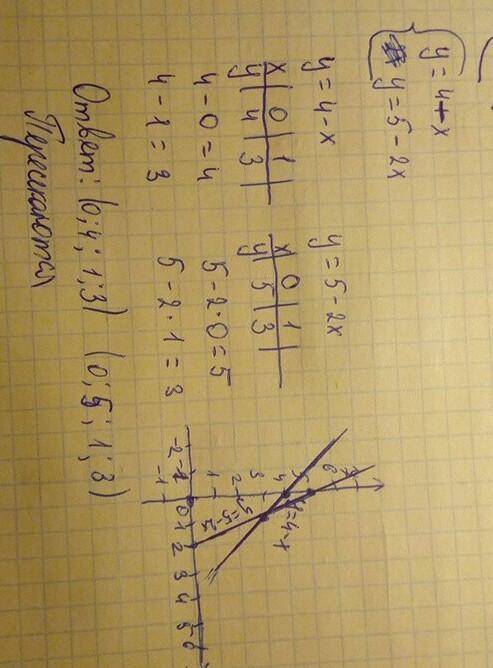 y = 4 - x
y = 5 - 2x
y = 4 - x
x | 0 | 1 |
y | 4 | 3 |
4 - 0 = 4
4 - 1 = 3
y = 5 - 2x
x | 0 | 1
y | 5 | 3
5 - 2 · 0 = 5
5 - 2 · 1 = 3
Ответ: (0; 4; 1; 3) (0; 5; 1; 3)
Пересекаются
y = 4 - x
6
5
4
3
2
1
-1
-2 -1 0 1 2 3 4 5 6